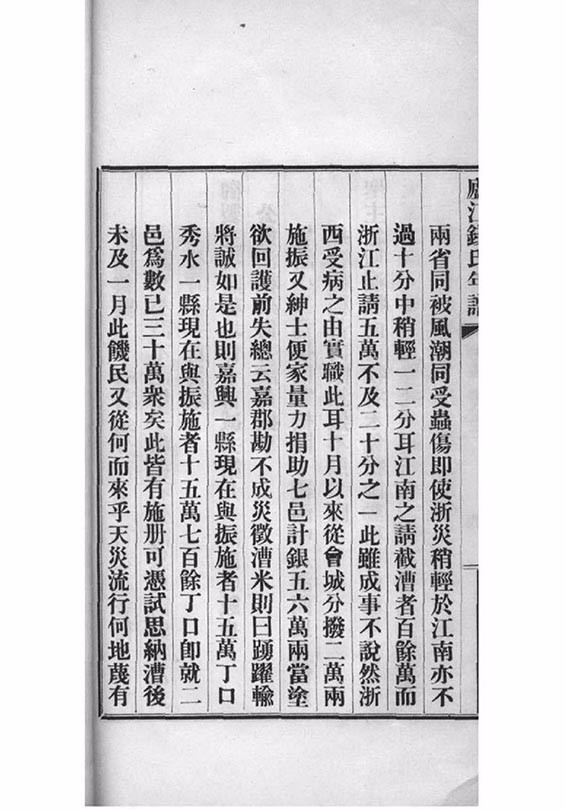 廬江錢氏年譜
兩省同被風潮同受蟲傷即使浙災稍輕於江南亦不
過十分中稍輕一二分耳江南之請截漕者百餘萬而
浙江止請五萬不及二十分之一此雖成事不說然浙
西受病之由實職此耳十月以來從會城分撥二萬兩
施振又紳士便家量力捐助七邑計銀五六萬兩當塗
欲回護前失總云嘉郡勘不成災徵漕米則曰踴躍輸
將誠如是也則嘉興一縣現在與振施者十五萬丁口
秀水一縣現在與振施者十五萬七百餘丁口卽就二
邑爲數已三十萬衆矣此皆有施册可憑試思納漕後
未及一月此饑民又從何而來乎天災流行何地蔑有